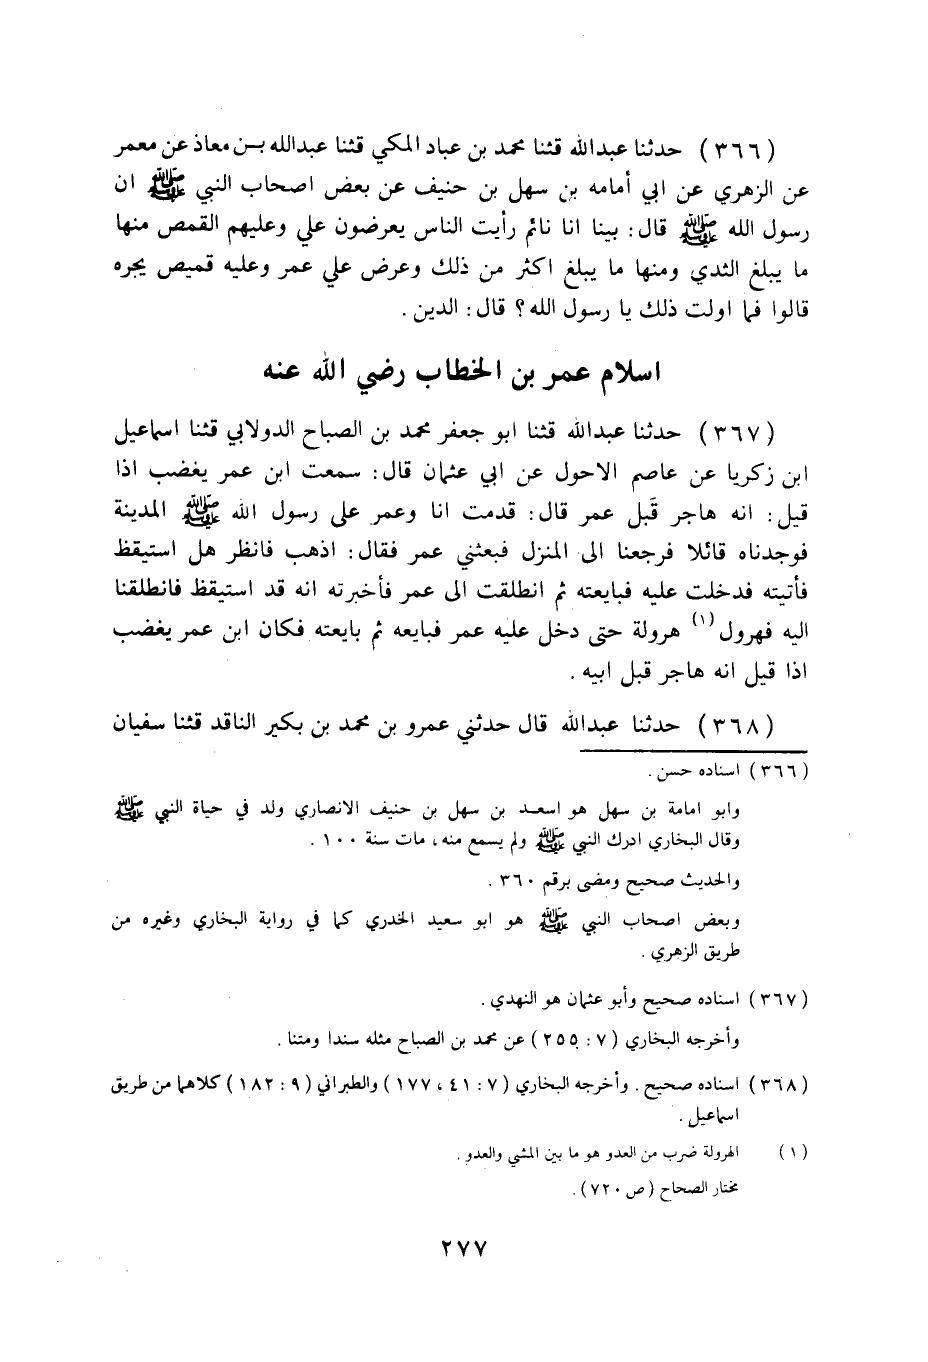 (٣٦٦) حدثنا عبدالله قثنا محمد بن عباد المكي قثنا عبدالله بـن معاذ عن معمر
عن الزهري عن ابي أمامه بن سهل بن حنيف عن بعض اصحاب النبي ﷺ ان
رسول الله ﷺ قال: بينا انا نائم رأيت الناس يعرضون علي وعليهم القمص منها
ما يبلغ الثدي ومنها ما يبلغ اكثر من ذلك وعرض علي عمر وعليه قميص يجره
قالوا فما اولت ذلك يا رسول الله؟ قال: الدين.
اسلام عمر بن الخطاب رضي الله عنه
(٣٦٧) حدثنا عبدالله قثنا ابو جعفر محمد بن الصباح الدولابي قثنا اسماعيل
ابن زكريا عن عاصم الاحول عن ابي عثمان قال: سمعت ابن عمر يغضب اذا
قيل: انه هاجر قَبل عمر قال: قدمت انا وعمر على رسول الله ﷺ المدينة
فوجدناه قائلا فرجعنا الى المنزل فبعثني عمر فقال: اذهب فانظر هل استيقظ
فأتيته فدخلت عليه فبايعته ثم انطلقت الى عمر فأخبرته انه قد استيقظ فانطلقنا
اليه فهرول (١) هرولة حتى دخل عليه عمر فبايعه ثم بايعته فكان ابن عمر يغضب
اذا قيل انه هاجر قبل ابيه.
(٣٦٨) حدثنا عبدالله قال حدثني عمرو بن محمد بن بكير الناقد قثنا سفيان
(٣٦٦) اسناده حسن.
وابو امامة بن سهل هو اسعد بن سهل بن حنيف الانصاري ولد في حياة النبي ﷺ
وقال البخاري ادرك النبي ﷺ ولم يسمع منه، مات سنة ١٠٠.
والحديث صحيح ومضى برقم ٣٦٠.
وبعض اصحاب النبي ﷺ هو ابو سعيد الخدري كما في رواية البخاري وغيره من
طريق الزهري.
(٣٦٧) اسناده صحيح وأبو عثمان هو النهدي.
وأخرجه البخاري (٧: ٢٥٥) عن محمد بن الصباح مثله سندا ومتنا.
(٣٦٨) اسناده صحيح. وأخرجه البخاري (٧: ٤١، ١٧٧) والطبراني (٩: ١٨٢) كلاهما من طريق
اسماعيل.
(١) الهرولة ضرب من العدو هو ما بين المشي والعدو.
مختار الصحاح (ص ٧٢٠).
٢٧٧